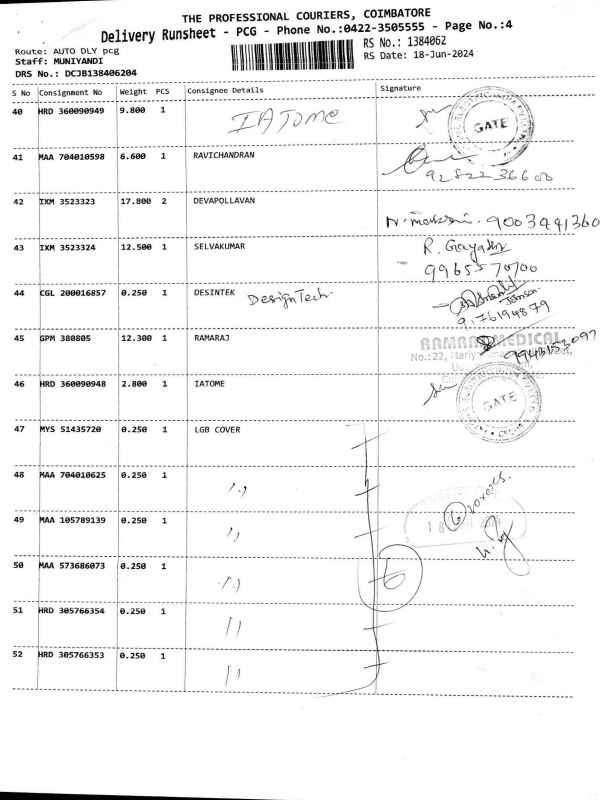 THE PROFESSIONAL COURIERS, COIMBATORE
Delivery Runsheet - PCG - Phone No.:0422-3505555 - Page No.:4
Route: AUTO DLY pcg
Staff: MUNIYANDI
DRS No.: DCJB138406204
RS No.: 1384062
RS Date: 18-Jun-2024
S No Consignment No Weight PCS Consignee Details Signature
40 HRD 360090949 9.800 1 IATOME
GATE
41 MAA 704010598 6.600 1 RAVICHANDRAN
92822 36600
42 IXM 3523323 17.800 2 DEVAPOLLAVAN
9003441360
43 IXM 3523324 12.500 1 SELVAKUMAR R. Gayathri
9965570700
44 CGL 200016857 0.250 1 DESINTEK Design Tech
9176194879
45 GPM 380805 12.300 1 RAMARAJ
MEDICAL
No.:22,
46 HRD 360090948 2.800 1 IATOME
GATE
47 MYS 51435720 0.250 1 LGB COVER
48 MAA 704010625 0.250 1
49 MAA 105789139 0.250 1
6
50 MAA 573686073 0.250 1
6
51 HRD 305766354 0.250 1
52 HRD 305766353 0.250 1